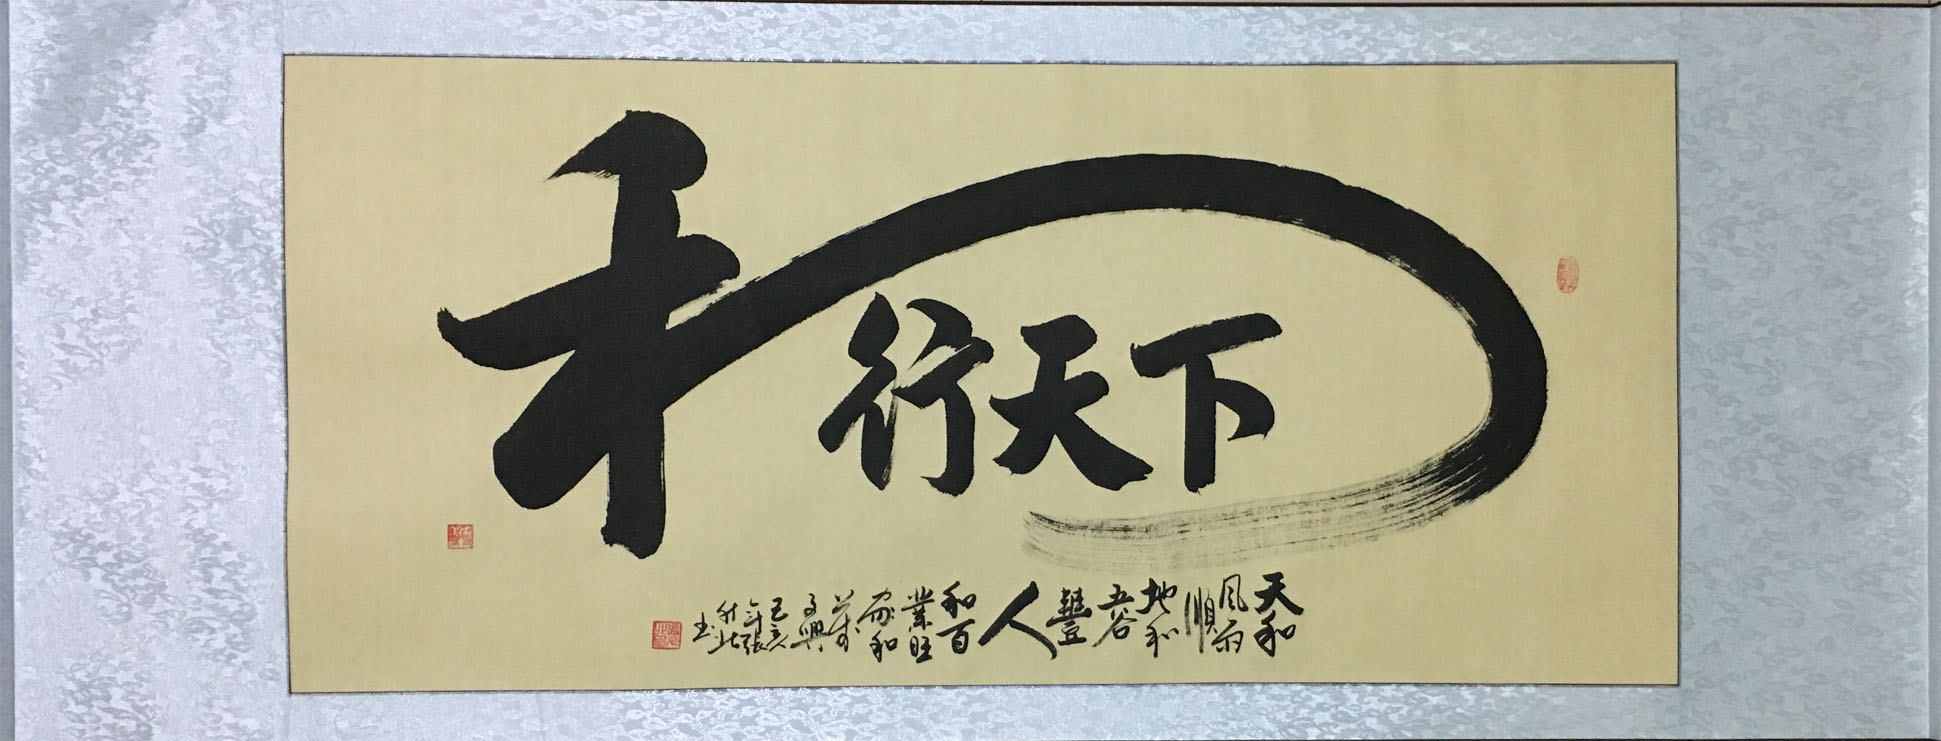 和行天下
天和
風雨
順
地和
五谷
豐
人
和百
業旺
家和
萬
事興
己亥
年張
书